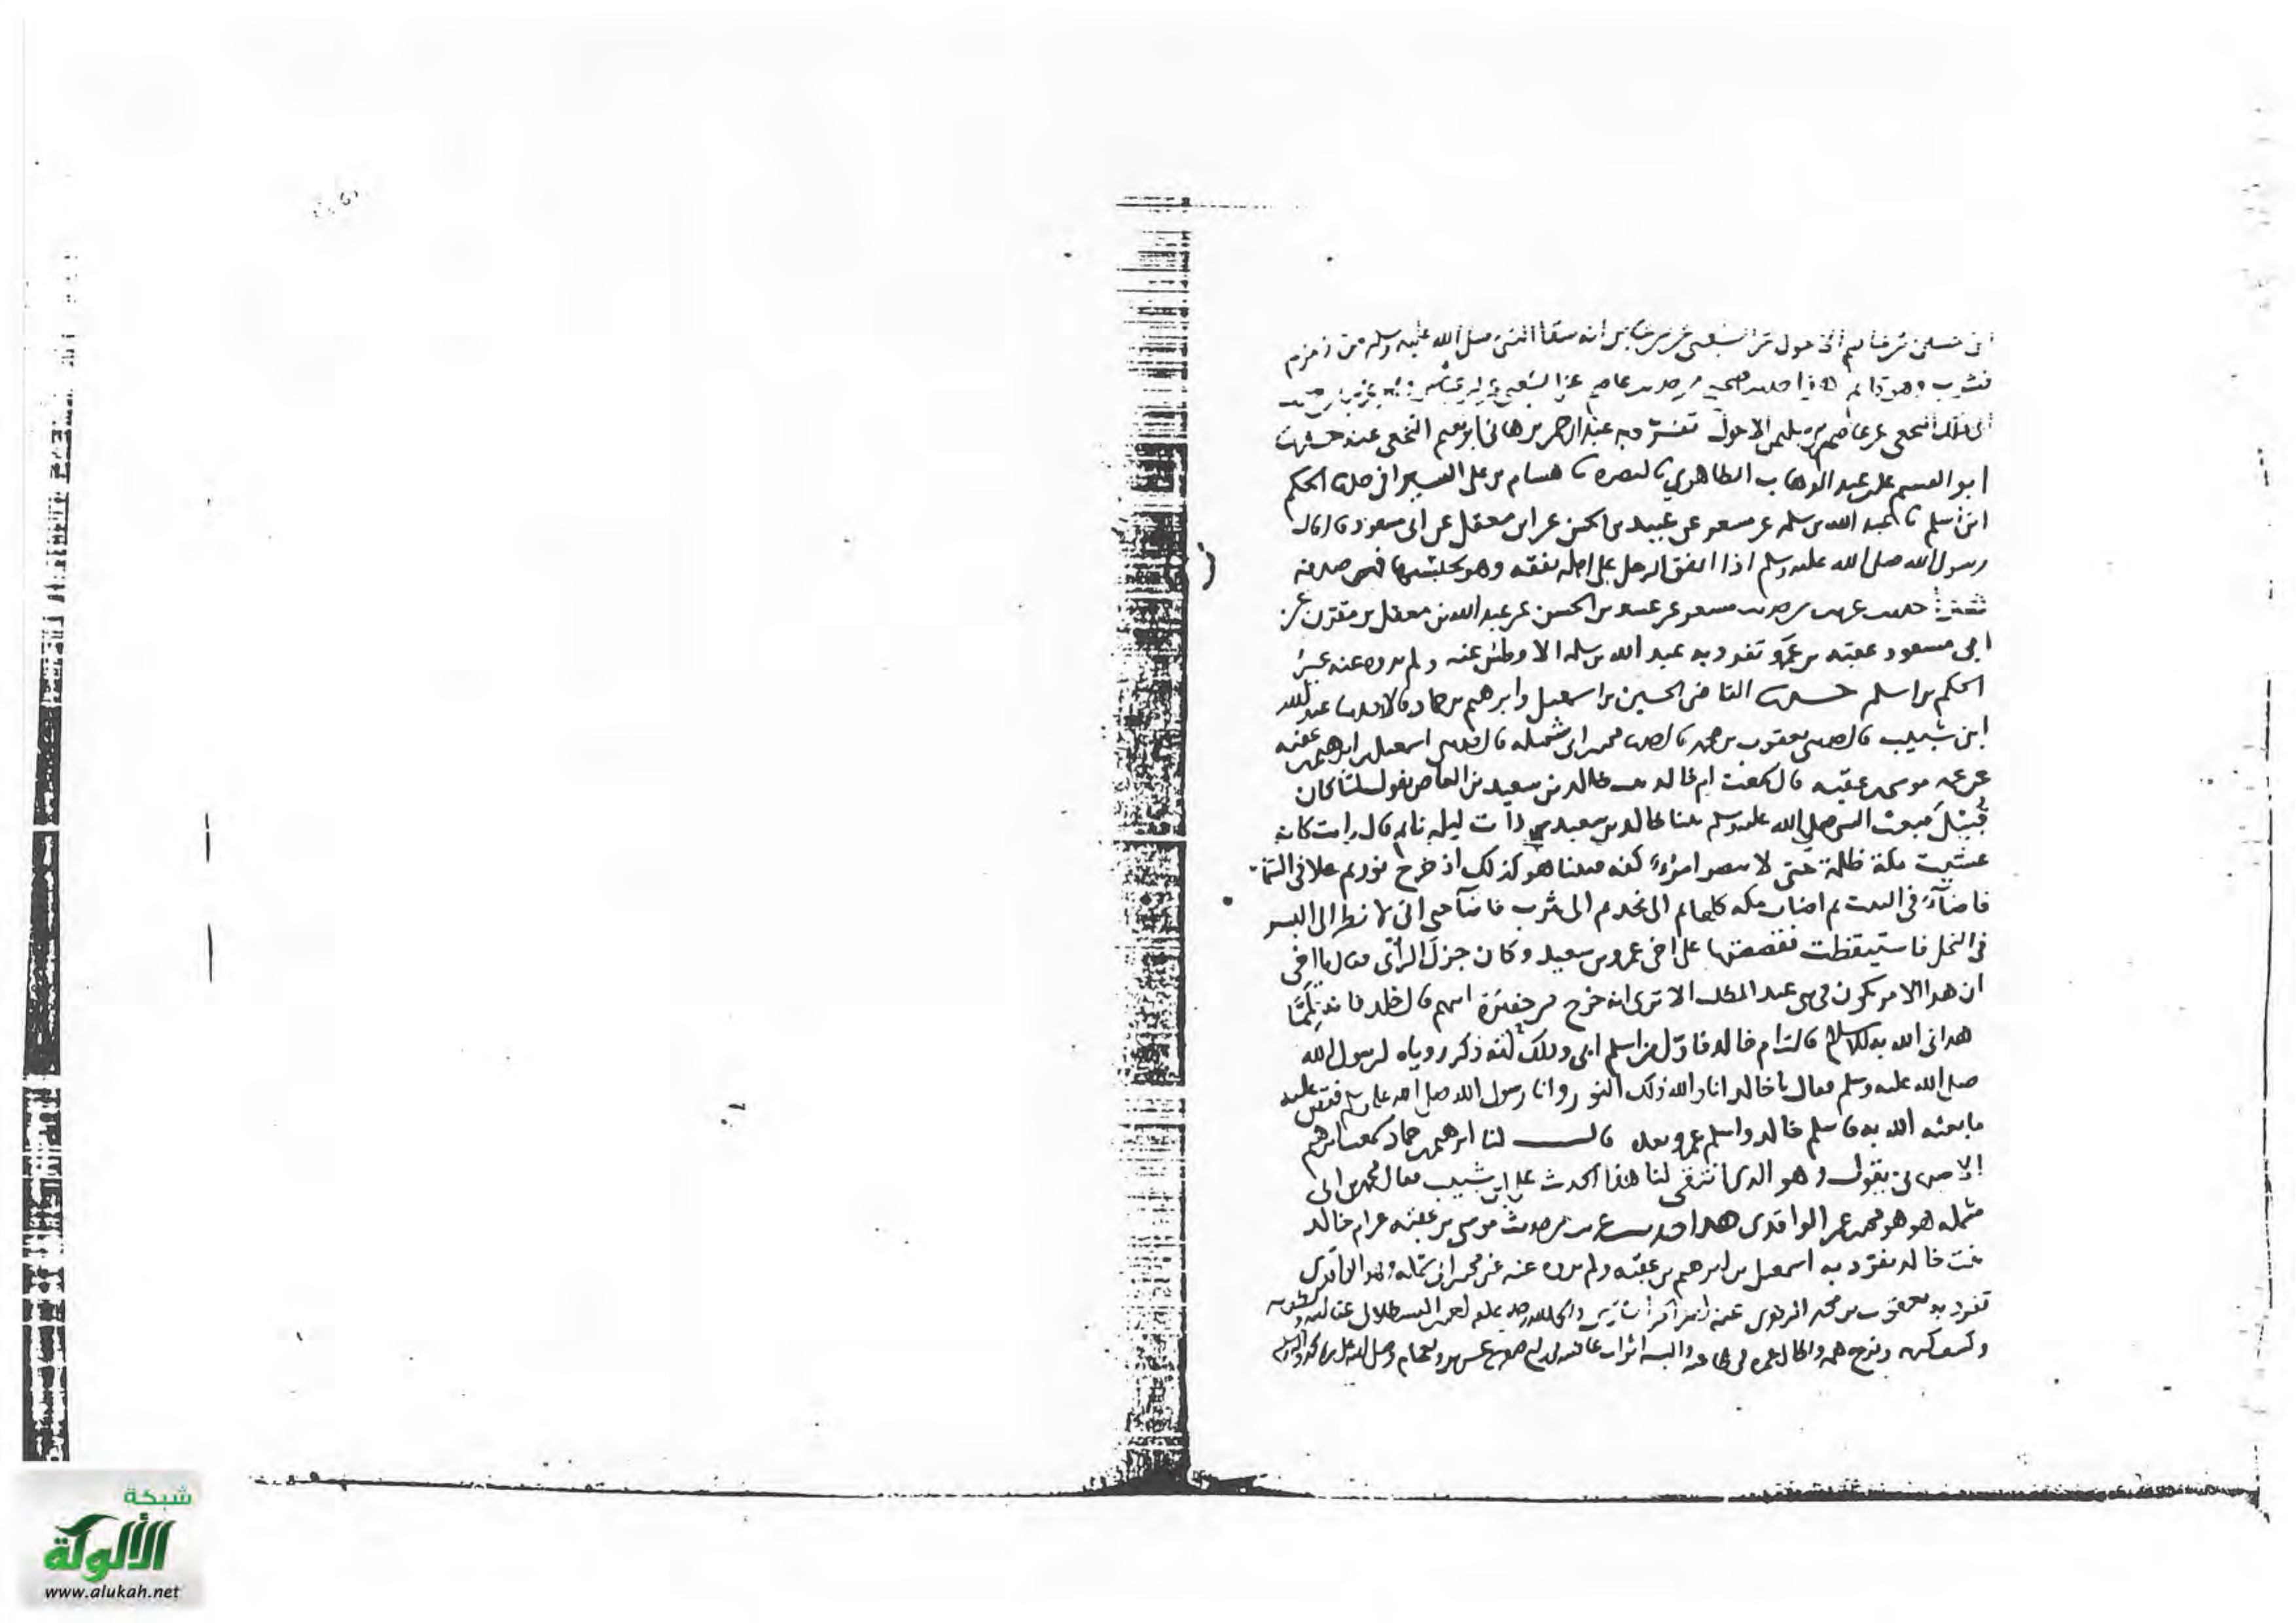 عن عاصم الاحول عن الشعبي عن بن عباس انه سقا النبي صلى الله عليه وسلم من زمزم
فشرب وهو قائم هذا حديث صحيح من حديث عاصم عن الشعبي عن بن عباس
النخعي عن عاصم بن سليمن الاحول تفرد به عبد الرحمن بن هاني ابو نعيم النخعي عنه حدثنا
ابو القسم علي عبد الوهاب الطاهري بالبصره هشام بن علي السيرافي الحكم
ابن اسلم عبد الله بن سلمه عن مسعر عن عبيد بن الحسن عن ابن معقل عن ابي مسعود قال قال
رسول الله صلى الله عليه وسلم اذا انفق الرجل على اهله نفقه وهو يحتسبها فهي صدقه
حديث غريب من حديث مسعر عن عبيد بن الحسن عن عبد الله بن معقل بن مقرن عن
ابي مسعود عقبه بن عمرو تفرد به عبد الله بن سلمه الافطس عنه ولم يروه عنه غير
الحكم بن اسلم حدثنا القاضي الحسين بن اسمعيل وابرهيم بن حماد قالا عبد الله
ابن شبيب قال يعقوب بن محمد قال محمد ابي شمله قال اسمعيل ابرهيم عقبه
عن عمه موسى عقبه قال سمعت ام خالد بنت خالد بن سعيد بن العاص يقول لما كان
قبيل مبعث النبي صلى الله عليه وسلم بينا خالد بن سعيد ذات ليله نايم قال رايت كانه
غشيت مكة ظلمة حتى لا يبصر امرؤ كفه فبينا هو كذلك اذ خرج نور ثم علا في السما
فاضآء في البيت ثم اضات مكه كلها ثم الى نجد ثم الى يثرب فاضآ حتى اني لانظر الى البسر
في النخل فاستيقظت فقصصتها على اخي عمرو بن سعيد وكان جزل الرأي فقال يا اخي
ان هذا الامر يكون في بني عبد المطلب الا ترى انه خرج من حفيرة ابيهم قال خلد فانه لما
هداني الله به للاسلام قالت ام خالد فاول من اسلم ابي وذلك انه ذكر روياه لرسول الله
صلى الله عليه وسلم فقال يا خالد انا والله ذلك النور وانا رسول الله صلى الله عليه وسلم فقص عليه
ما بعثه الله به فاسلم خالد واسلم عمرو بعده قال لنا ابرهيم حماد سمعت ابرهيم
الاصبهاني يقول وهو الذي انتقى لنا هذا الحديث على ابن شبيب فقال محمد بن ابي
شمله هو هو محمد عمر الواقدي هذا حديث غريب من حديث موسى بن عقبه عن ام خالد
بنت خالد تفرد به اسمعيل بن ابرهيم بن عقبه ولم يروه عنه غير محمد ابي شمله وهو الواقدي
تفرد به يعقوب بن محمد الزهري عنه
شبكة
الألوكة
www.alukah.net